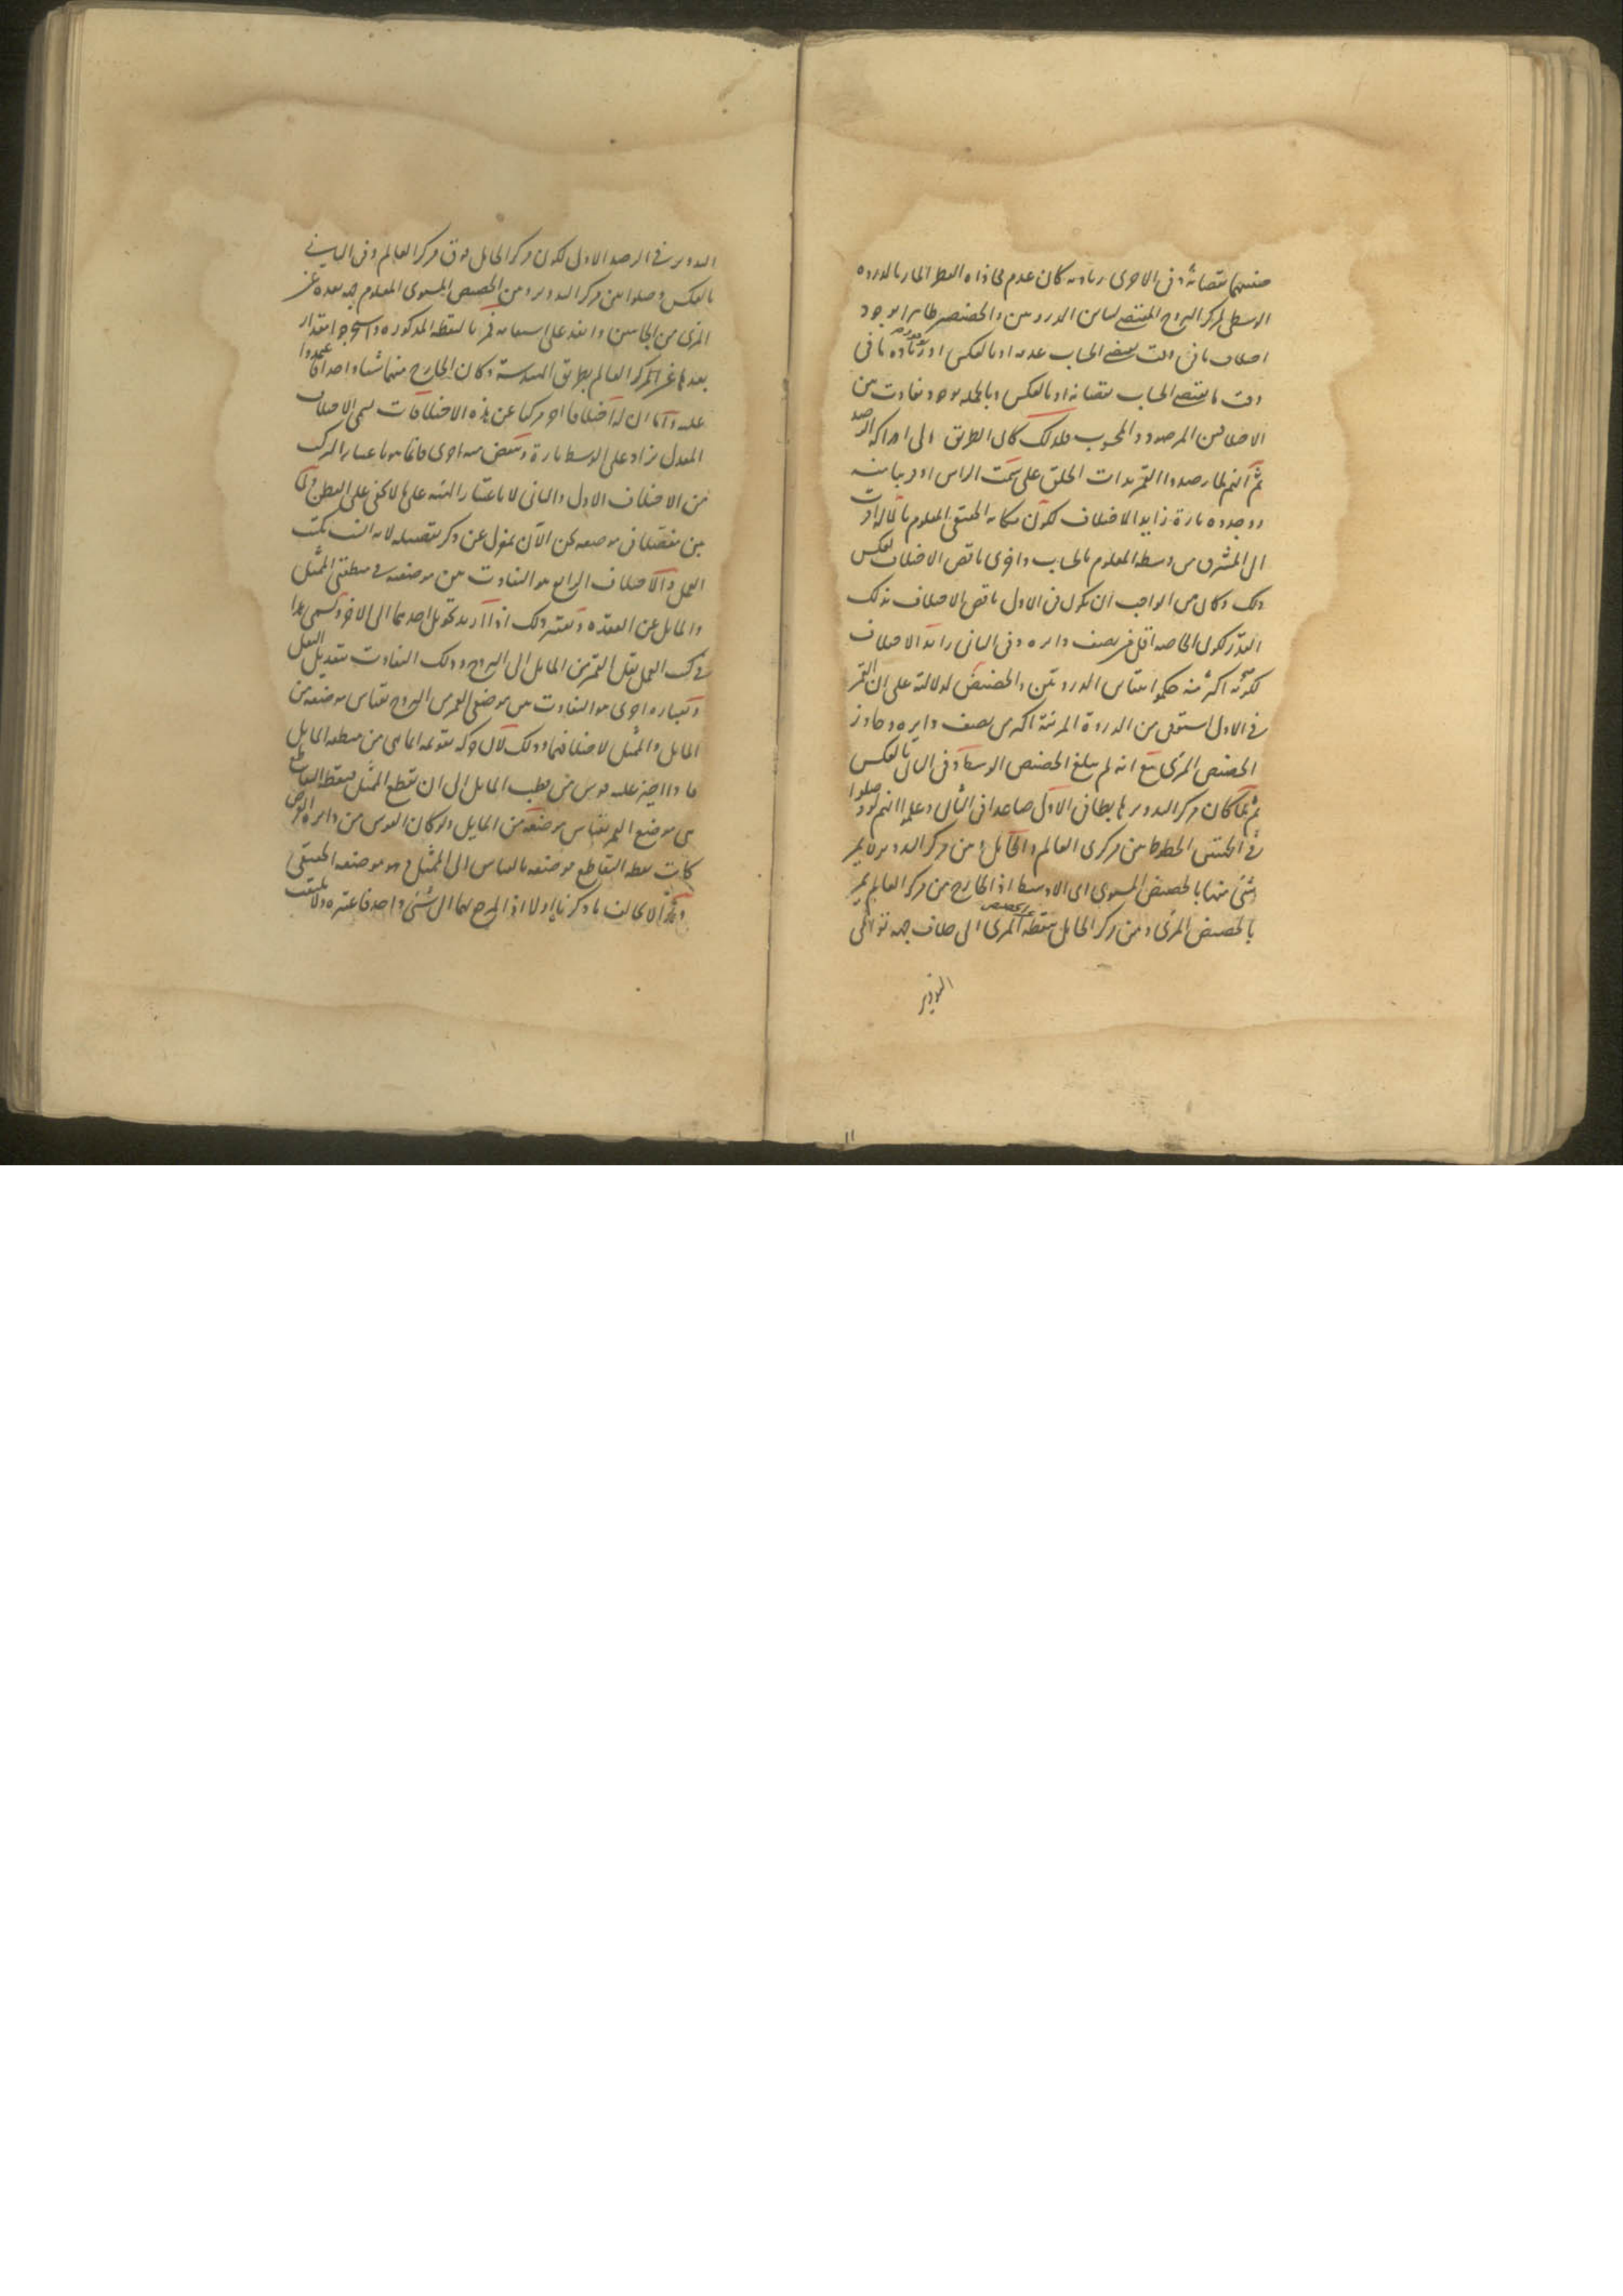 منهما نقصانه وفى الاخرى زيادته كان عدم محاذاة القطر المار بالذروة
الوسطى لمركز البروج المقتضى لتباين الذروتين والحضيضين ظاهر الوجود
اختلاف ما فى وقت يقتضى الحساب عدمه او بالعكس او زيادة ما فى
وقت ما يقتضى الحساب نقصانه او بالعكس وبالجملة وجود تفاوت بين
الاختلافين المرصود والمحسوب فلذلك كان الطريق الى ادراكه الرصد
ثم انهم لما رصدوا القمر بذات الحلق على سمت الراس او قريبا منه
ووجدوه تارة زايد الاختلاف لكون مكانه الحقيقى المعلوم بالآلة اقرب
الى المشرق من وسطه المعلوم بالحساب واخرى ناقص الاختلاف لعكس
ذلك وكان من الواجب ان يكون فى الاول ناقص الاختلاف بذلك
القدر لكون الخاصة اقل من نصف دايرة وفى الثانى زايد الاختلاف
لكونه اكثر منه حكموا بتباين الذروتين والحضيضين لدلالته على ان القمر
فى الاول استوفى من الذروة المرئية اكثر من نصف دايرة وجاوز
الحضيض المرئى مع انه لم يبلغ الحضيض الاوسط وفى الثانى بالعكس
ثم لما كان مركز التدوير هابطا فى الاول صاعدا فى الثانى وعلموا انهم لو وصلوا
فى الحالتين الخطوط بين مركزى العالم والحامل وبين مركز التدوير لم يمر
شئ منها بالحضيض المستوى اى الاوسط اذ الخارج من مركز العالم يمر
بالحضيض المرئى ومن مركز الحامل بنقطة المرئى الى خلاف جهة توالى
التدوير
التدوير فى الرصد الاول لكون مركز الحامل فوق مركز العالم وفى الثانى
بالعكس وصلوا بين مركز التدوير وبين الحضيض المستوى المعلوم جهة بعده عن
المرئى من الجانبين وانفذ على استقامته فمر بالنقطة المذكورة واستخرجوا مقدار
بعدها عن مركز العالم بطريق الهندسة وكان الخارج منهما شيئا واحدا فاعتمدوا
عليه واما ان له اختلافا اخر مركبا عن هذه الاختلافات يسمى الاختلاف
المعدل يزاد على الوسط تارة وينقص منه اخرى فانما هو باعتبار المركب
من الاختلاف الاول والثانى لا باعتبار الهيئة على ما لا يخفى على الفطن ولما
العمل والاختلاف الرابع هو التفاوت بين موضعه فى منطقتى الممثل
والمايل عن العقدة ويعتبر ذلك اذا اريد تحويل احدهما الى الاخر ويسمى هذا
فى كتب العمل نقل القمر من المايل الى البروج وذلك التفاوت بتعديل النقل
وبعبارة اخرى هو التفاوت بين موضعى القمر من البروج بقياس موضعه من
المايل والممثل لاختلافهما وذلك لان حركة تقويمه انما هى من منطقة المايل
فاذا اخرجت عليه قوس من قطب المايل الى ان تقطع الممثل فنقطة التقاطع
هى موضع القمر بقياس موضعه من المايل ولو كان القوس من دايرة العرض
كانت نقطة التقاطع موضعه بالقياس الى الممثل وهو موضعه الحقيقى
وهذا لا يخالف ما ذكرناه اولا اذ المرجع بهما الى شئ واحد فاعتبره ولا يلتفت